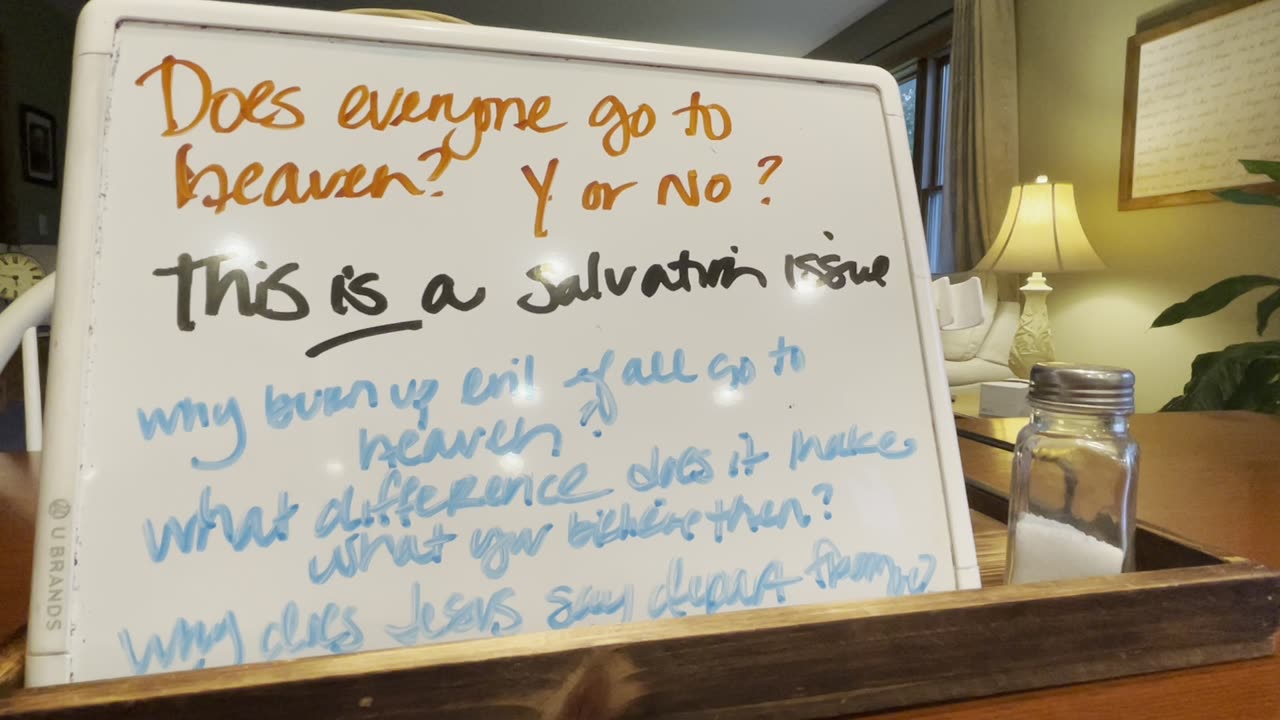 Does everyone go to
heaven? Y or No?
This is a salvation issue
why burn up evil if all go to
heaven?
what difference does it make
what you believe then?
Why does Jesus say depart from me?
U BRANDS